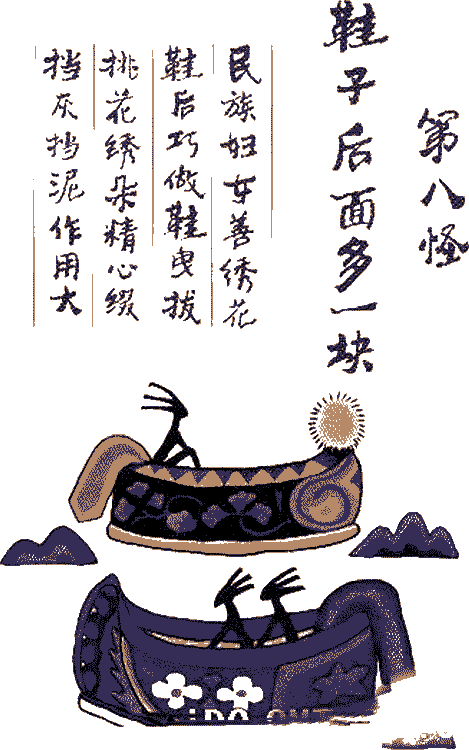 第八怪
鞋子后面多一块
民族妇女善绣花
鞋后巧做鞋曳拔
挑花绣朵精心缀
挡灰挡泥作用大